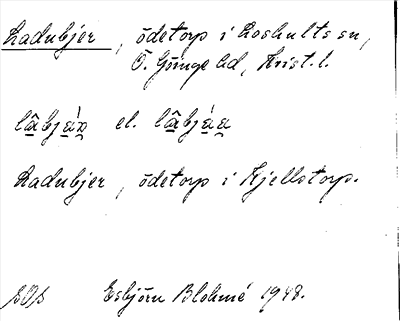 Ladubjer, ödetorp i Loshults sn,
Ö. Göinge hd, Krist. l.
lâbjáʀ el. lâbjáʀ
Ladubjer, ödetorp i Kjellstorp.
Esbjörn Blohmé 1948.